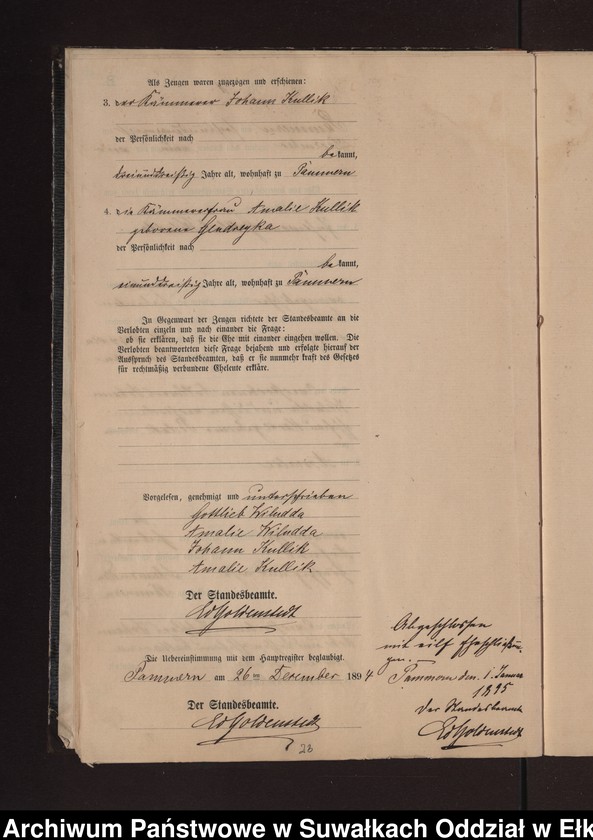 Als Zeugen waren zugezogen und erschienen:
3. der Kämmerer Johann Kullik
der Persönlichkeit nach
bekannt,
dreiunddreißig Jahre alt, wohnhaft zu Pammern
4. die Kämmererfrau Amalie Kullik
geborene
der Persönlichkeit nach
bekannt,
einunddreißig Jahre alt, wohnhaft zu Pammern
In Gegenwart der Zeugen richtete der Standesbeamte an die
Verlobten einzeln und nach einander die Frage:
ob sie erklären, daß sie die Ehe mit einander eingehen wollen. Die
Verlobten beantworteten diese Frage bejahend und erfolgte hierauf der
Ausspruch des Standesbeamten, daß er sie nunmehr kraft des Gesetzes
für rechtmäßig verbundene Eheleute erkläre.
Vorgelesen, genehmigt und unterschrieben
Gottlieb Wiludda
Amalie Wiludda
Johann Kullik
Amalie Kullik
Der Standesbeamte.
EdGoldenstedt
Die Uebereinstimmung mit dem Hauptregister beglaubigt.
Pammern am 26ten December 1894
Der Standesbeamte.
EdGoldenstedt
28
Abgeschlossen
mit eilf Eheschließun-
gen.
Pammern den 1. Januar
1895
Der Standesbeamte
EdGoldenstedt
Archiwum Państwowe w Suwałkach Oddział w Ełk